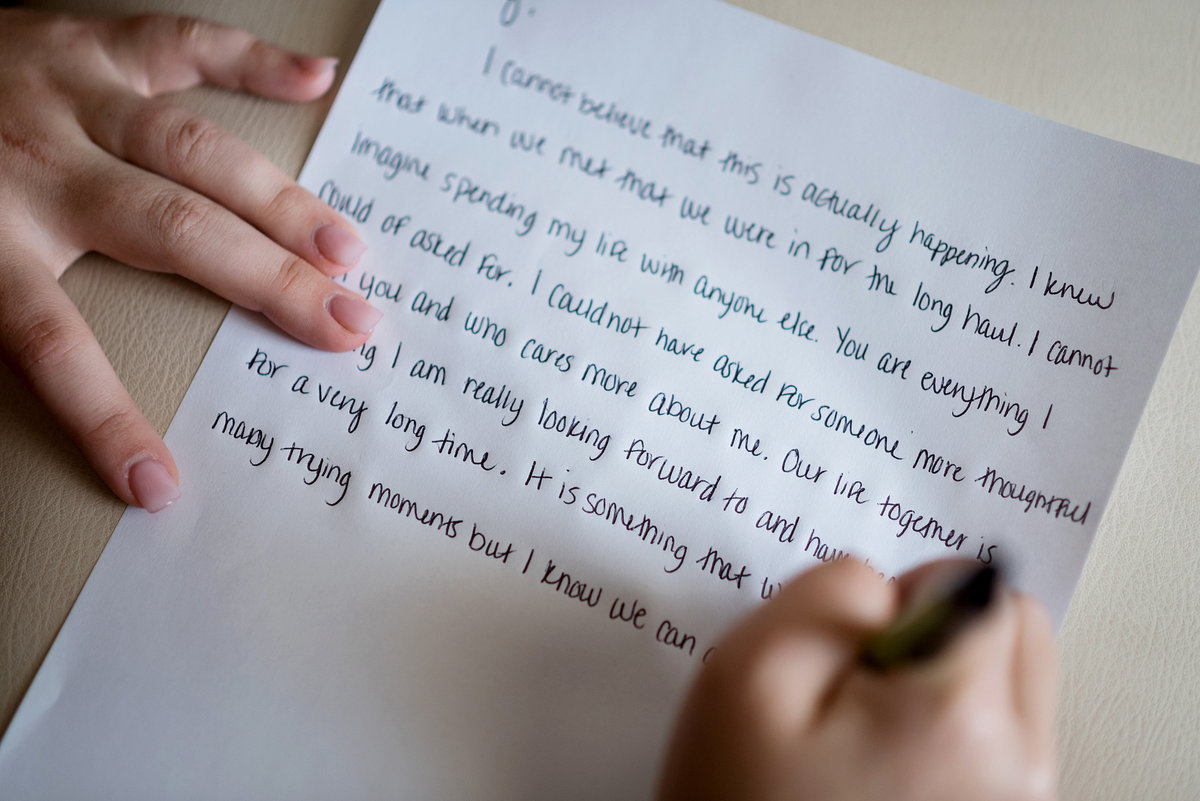 y.
I cannot believe that this is actually happening. I knew
that when we met that we were in for the long haul. I cannot
imagine spending my life with anyone else. You are everything I
could of asked for. I could not have asked for someone more thoughtful
you and who cares more about me. Our life together is
I am really looking forward to and have
for a very long time. It is something that
many trying moments but I know we can